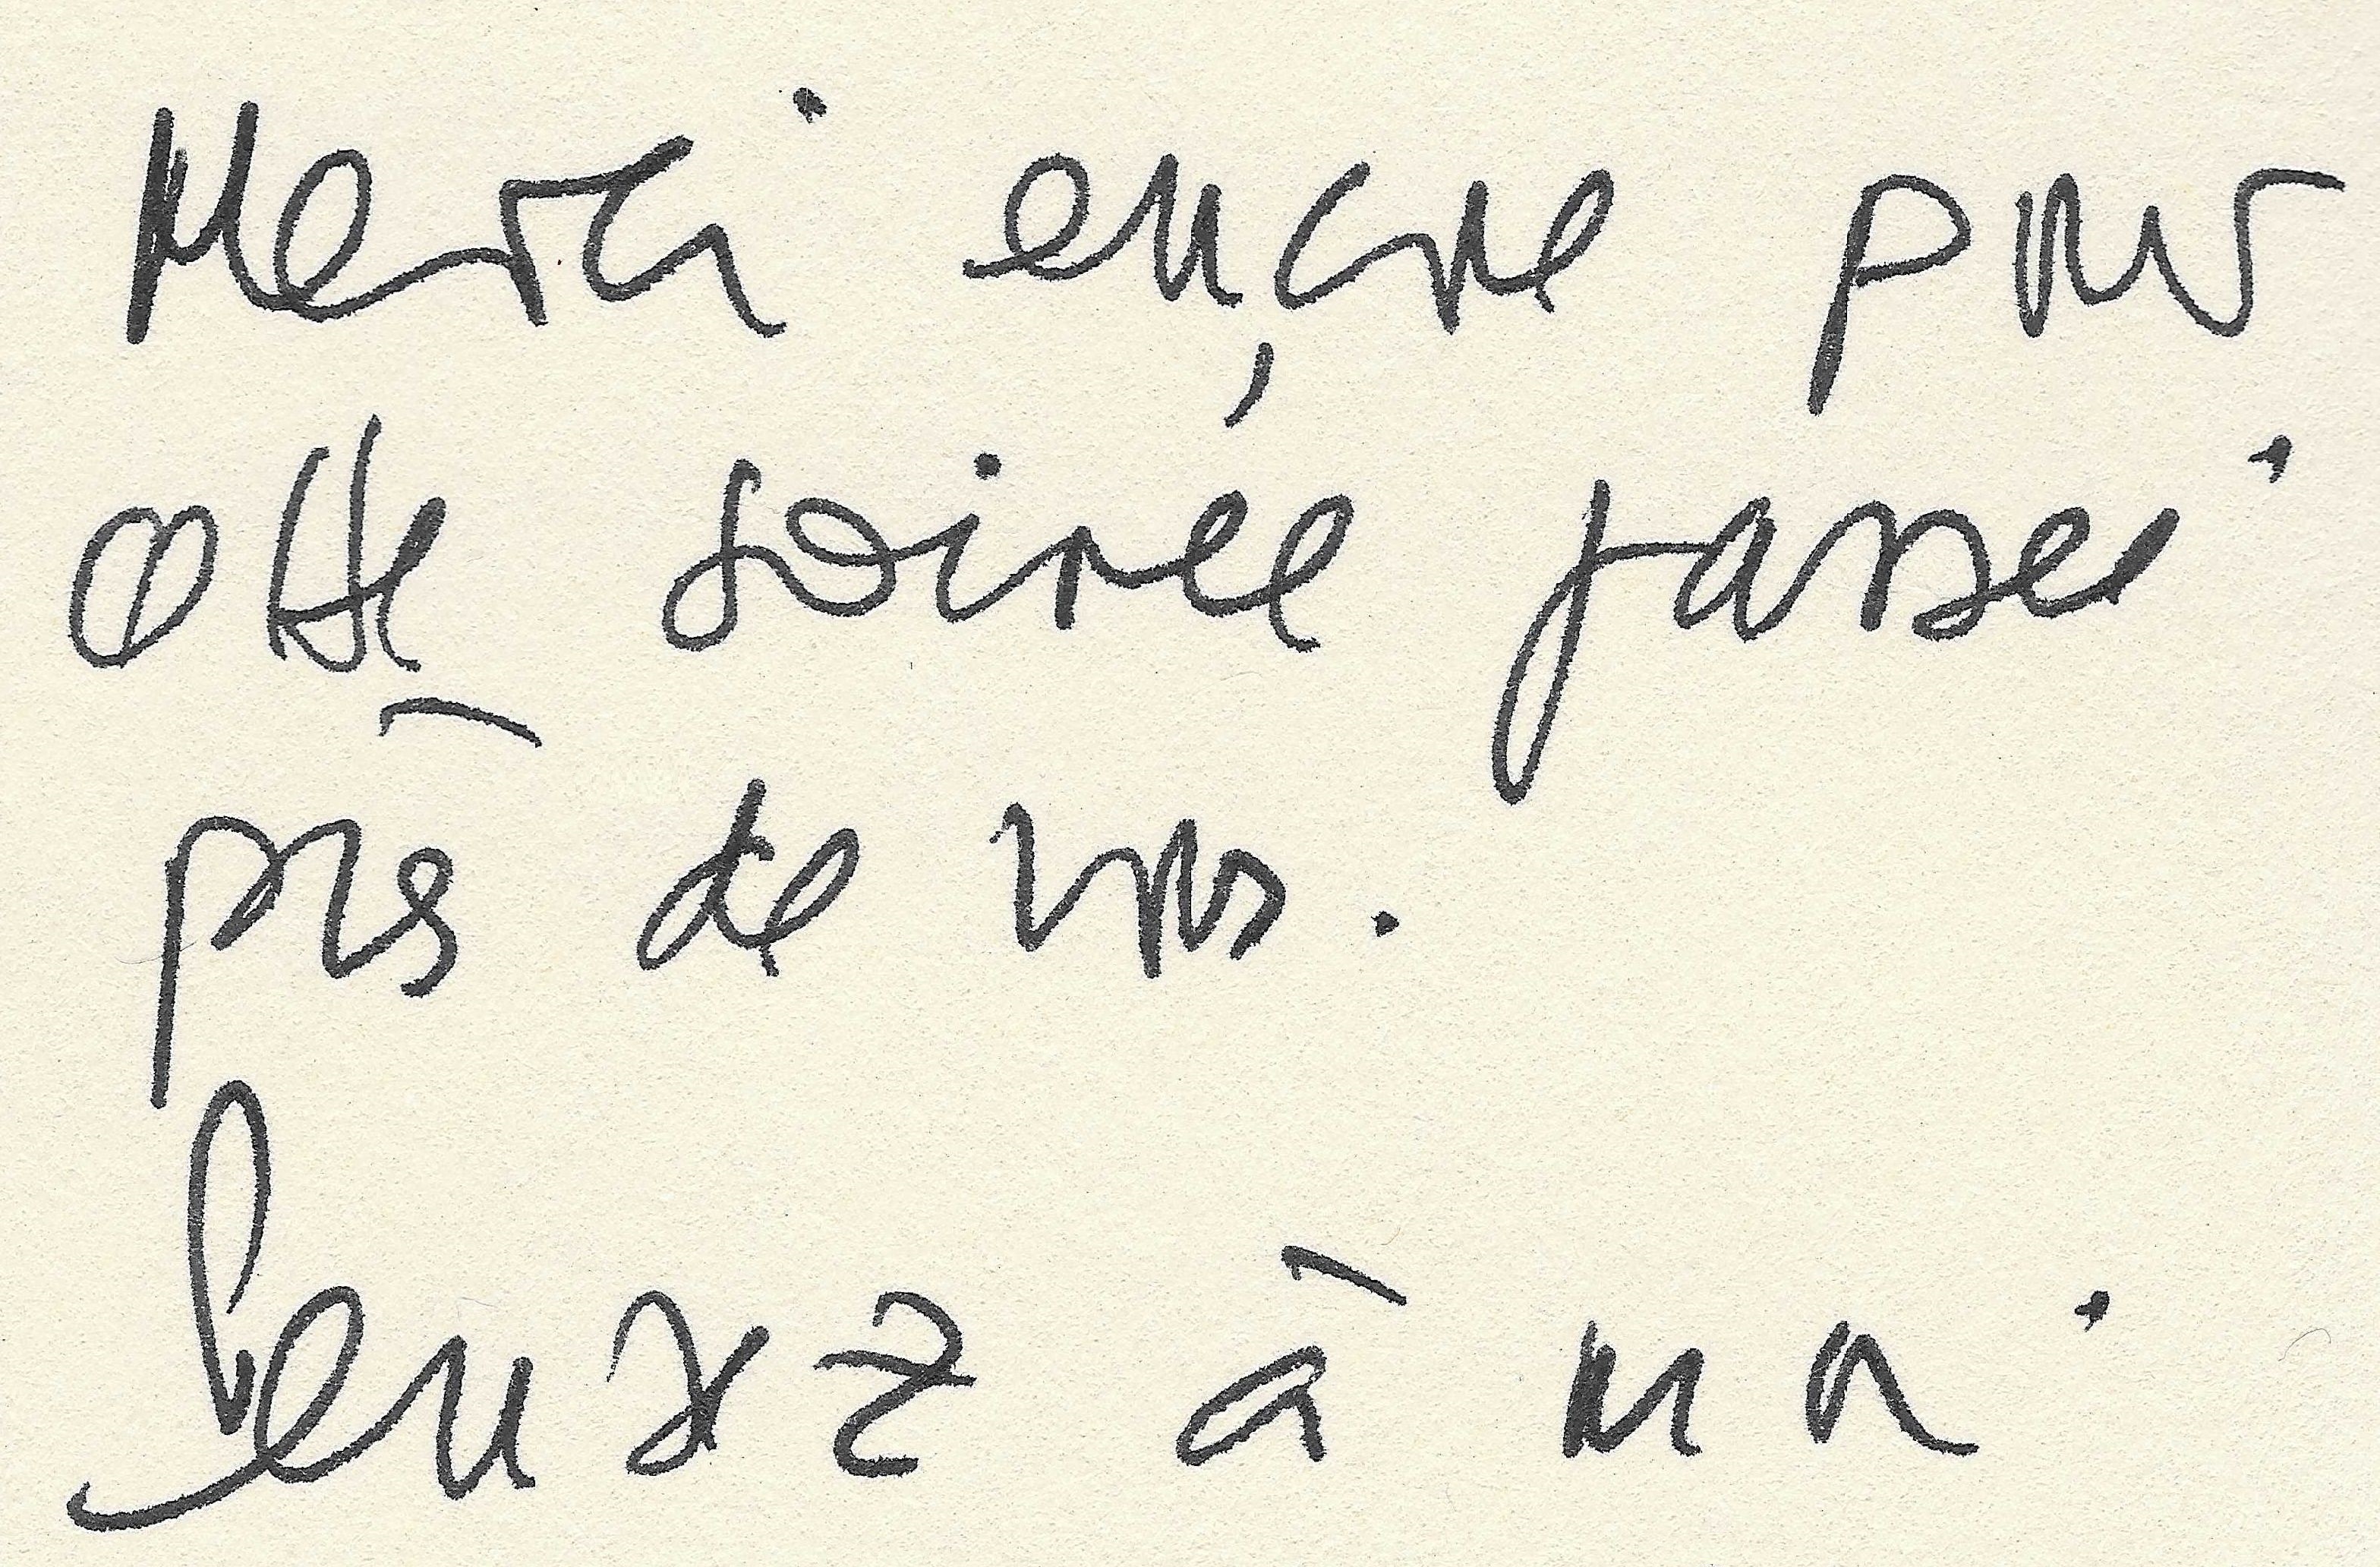 Merci encore pour
cette soirée passée
près de vous.
Pensez à moi